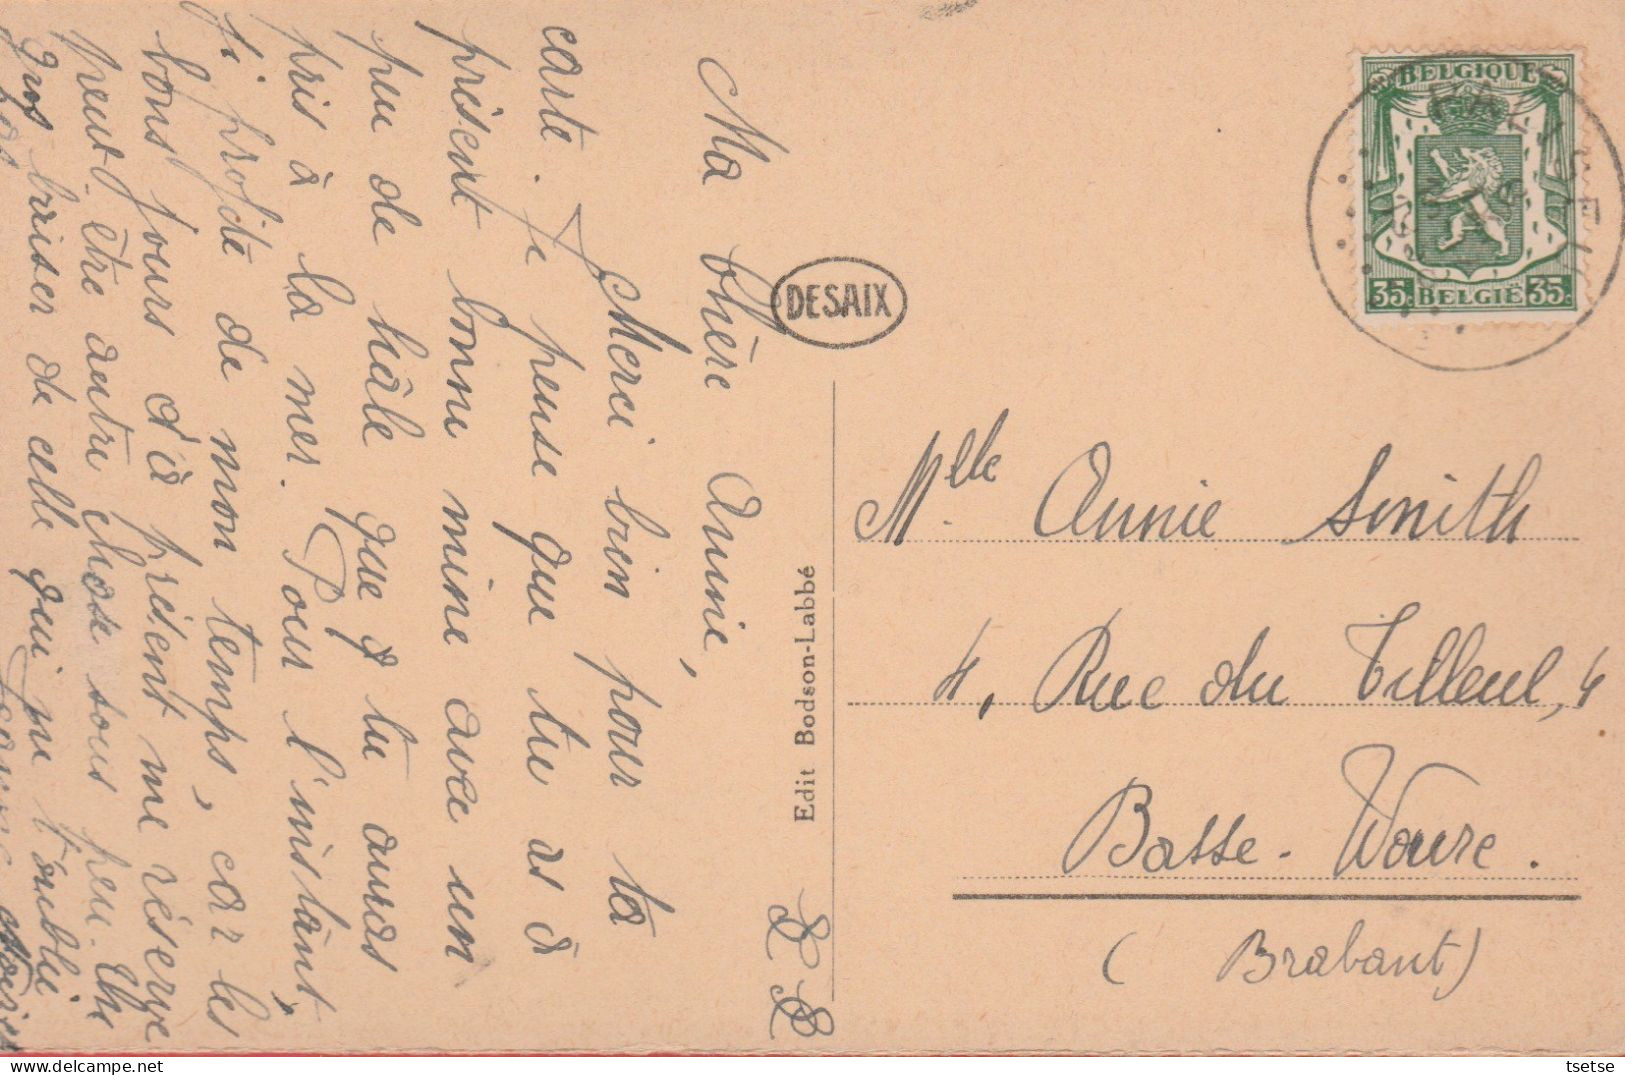 Ma chère Annie,
Merci bien pour ta
carte. Je pense que tu as à
présent bonne mine avec un
peu de hâle que tu auras
pris à la mer. Pour l'instant,
j'i profite de mon temps, car les
bons jours d'à présent me réserve
peut-être autre chose sous peu. Un
gros baiser de celle qui ne t'oublie
pas.
DESAIX
Edit Bodson-Labbé
BELGIQUE
35c BELGIË 35c
Mlle. Annie Smith
4, Rue du Tilleul, 4
Basse-Wavre.
(Brabant)